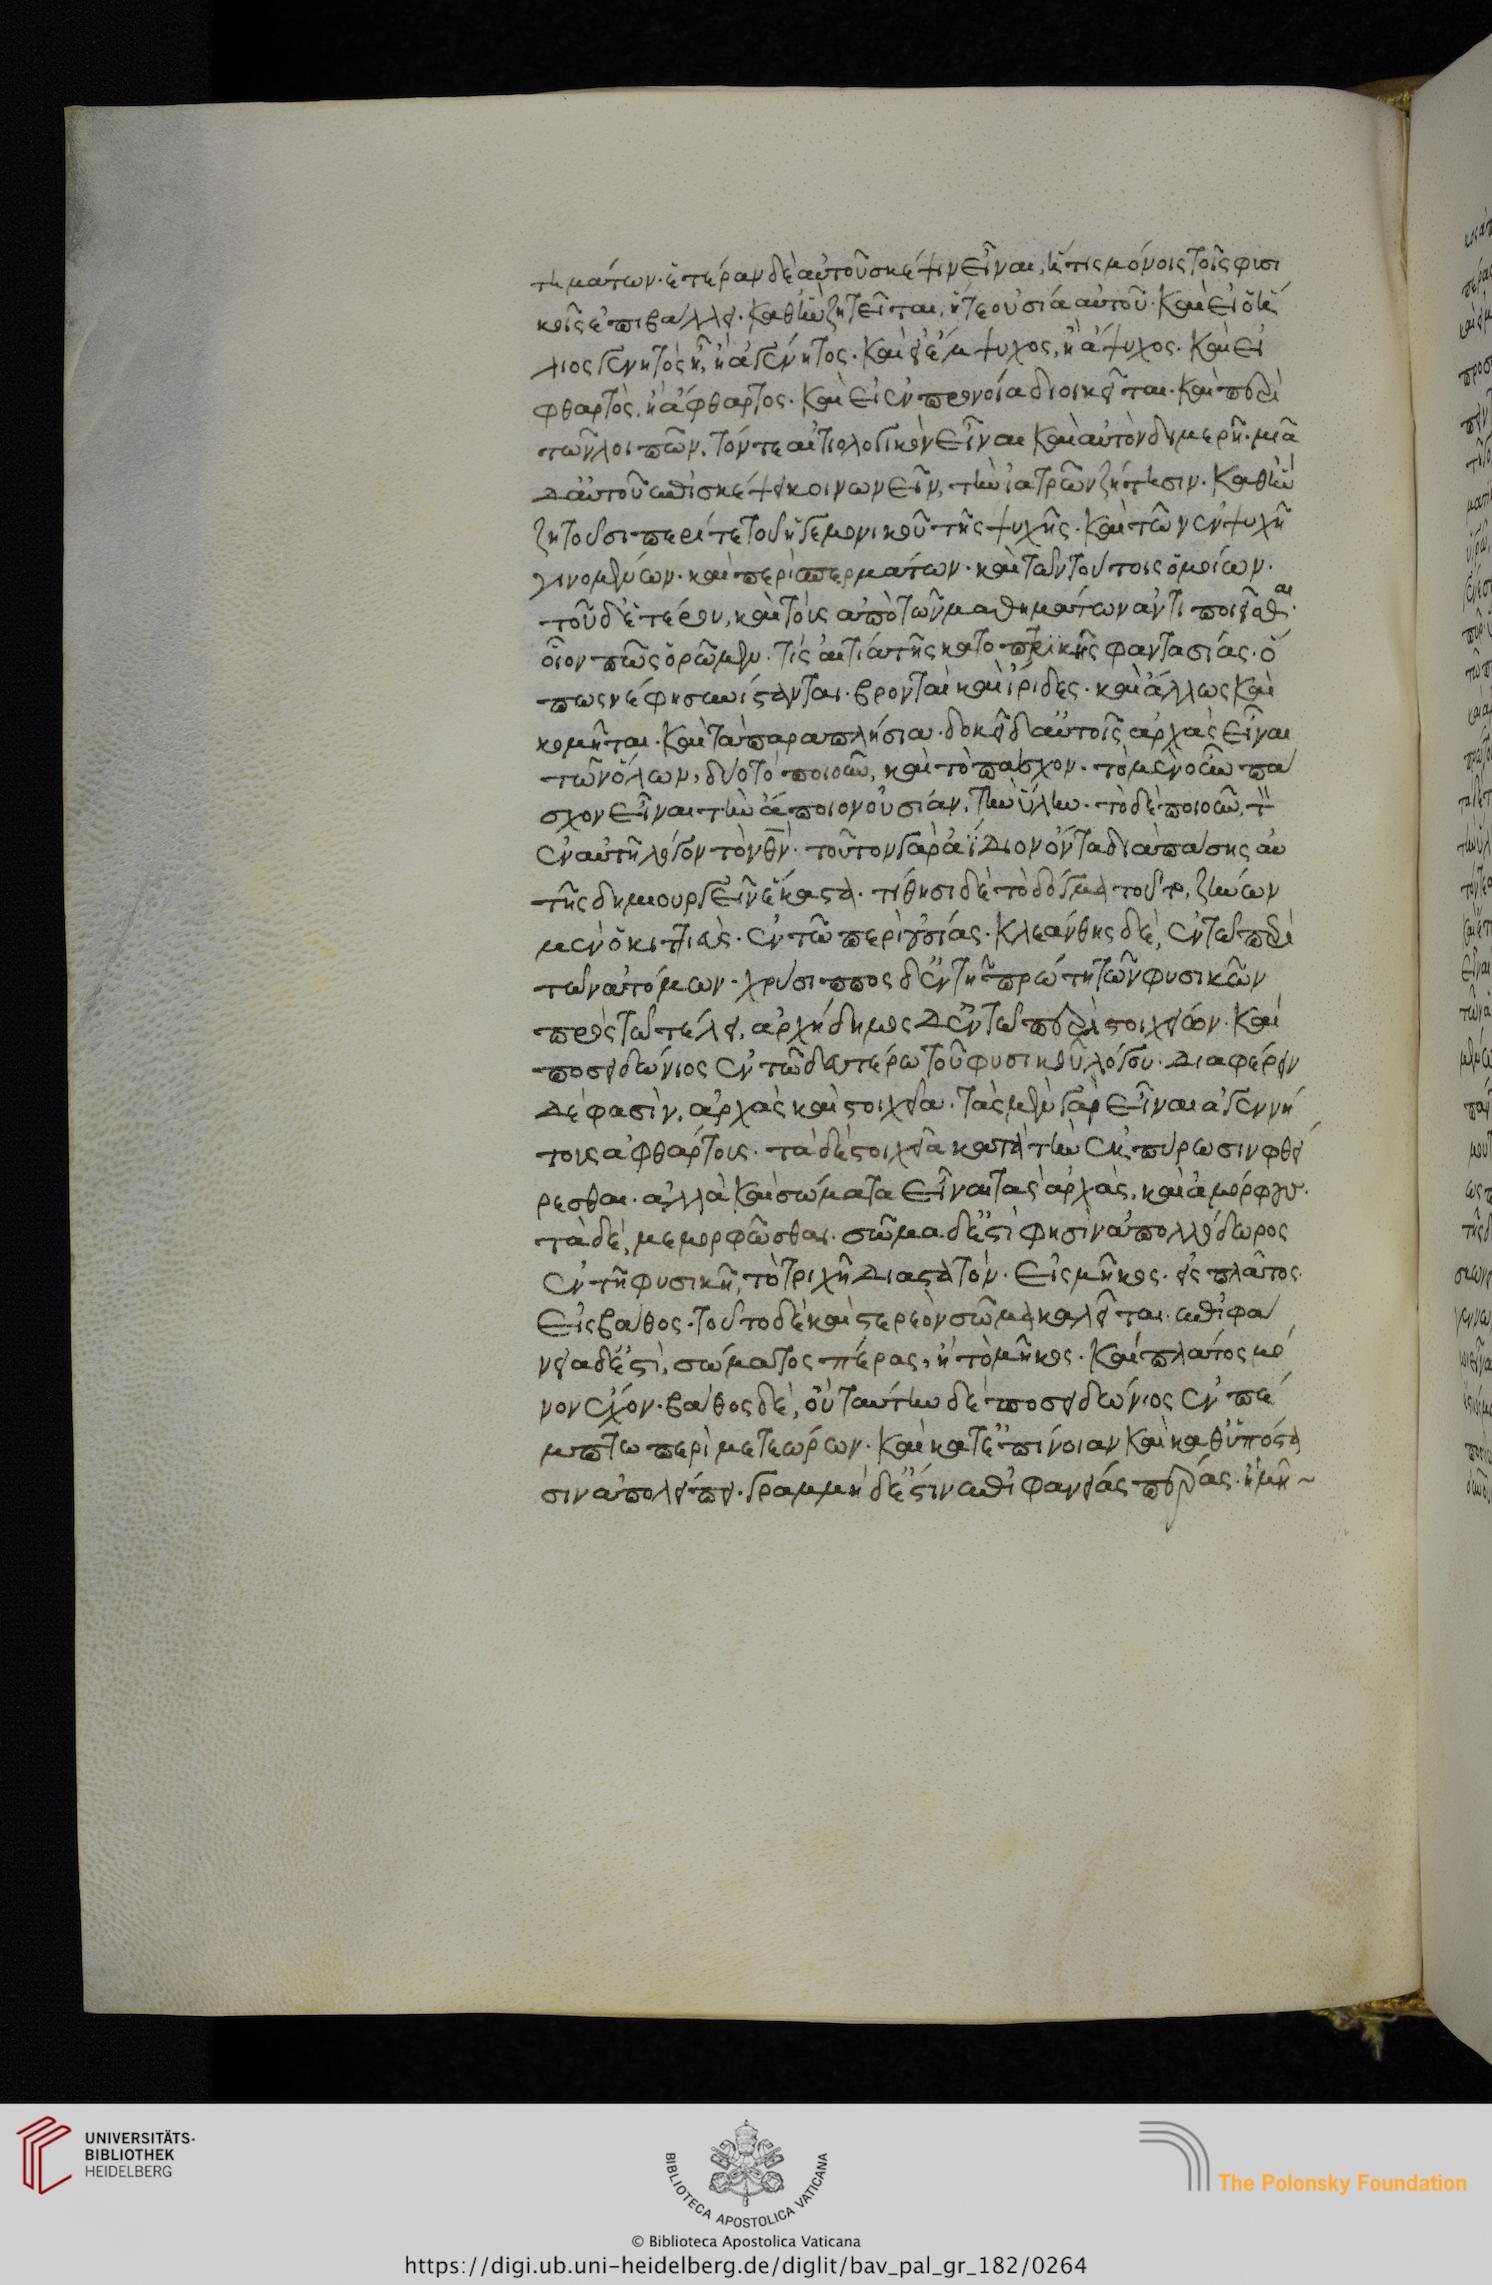 τημάτων. ἑτέραν δὲ αὐτοῦ σκέψιν εἶναι, ἥτις μόνοις τοῖς φυσι
κοῖς ἐπιβάλλει. καθ' ἣν ζητεῖται, ἥ τε οὐσία αὐτοῦ. καὶ εἰ ὁ ἥ
λιος γενητός ἢ, ἢ ἀγένητος. καὶ εἰ ἔμψυχος, ἢ ἄψυχος. καὶ εἰ
φθαρτὸς, ἢ ἄφθαρτος. καὶ εἰ ἐν προνοία διοικεῖται. καὶ περὶ
τῶν λοιπῶν. τόν τε αἰτιολογικὸν εἶναι καὶ αὐτὸν διμερῆ. μιᾶ
δ' αὐτοῦ ἐπισκέψει κοινωνεῖν, τὴν ἰατρῶν ζήτησιν. καθ' ἣν
ζητοῦσι περί τε τοῦ ἡγεμονικοῦ τῆς ψυχῆς. καὶ τῶν ἐν ψυχῆ
γινομένων. καὶ περὶ σπερμάτων. καὶ τῶν τούτοις ὁμοίων.
τοῦ δ' ἑτέρου, καὶ τοὺς ἀπὸ τῶν μαθημάτων ἀντιποιεῖσθαι.
οἷον πῶς ὁρῶμεν. τίς αἰτία τῆς κατοπτρικῆς φαντασίας. ὅ
πως νέφη συνίσταται. βρονταὶ καὶ ἴριδες. καὶ ἄλλως καὶ
κομῆται. καὶ τὰ παραπλήσια. δοκεῖ δ' αὐτοῖς ἀρχὰς εἶναι
τῶν ὅλων, δύο τὸ ποιοῦν, καὶ τὸ πάσχον. τὸ μὲν οὖν πά
σχον εἶναι τὴν ἄποιον οὐσίαν, τὴν ὕλην. τὸ δὲ ποιοῦν, τὸν
ἐν αὐτῆ λόγον τὸν θν̅. τοῦτον γὰρ ἀΐδιον ὄντα διὰ πάσης αὐ
τῆς δημιουργεῖν ἕκαστα. τίθησι δὲ τὸ δόγμα τοῦτο, ζήνων
μὲν ὁ κιτιεὺς. ἐν τῶ περὶ οὐσίας. κλεάνθης δὲ, ἐν τῶ περὶ
τῶν ἀτόμων. χρύσιππος δ' ἐν τῆ πρώτη τῶν φυσικῶν
πρὸς τῶ τέλει. ἀρχήδημος δ' ἐν τῶ περὶ στοιχείων. καὶ
ποσειδώνιος ἐν τῶ δευτέρω τοῦ φυσικοῦ λόγου. διαφέρειν
δέ φασὶν, ἀρχὰς καὶ στοιχεῖα. τὰς μὲν γὰρ εἶναι ἀγεννή
τους ἀφθάρτους. τὰ δὲ στοιχεῖα κατὰ τὴν ἐκπύρωσιν φθεί
ρεσθαι. ἀλλὰ καὶ σώματα εἶναι τὰς ἀρχὰς, καὶ ἀμόρφους.
τὰ δὲ, μεμορφῶσθαι. σῶμα δέ ἐστὶ φησὶν ἀπολλόδωρος
ἐν τῆ φυσικῆ, τὸ τριχῆ διαστατόν. εἰς μῆκος. εἰς πλάτος.
εἰς βάθος. τοῦτο δὲ καὶ στερεὸν σῶμα καλεῖται. ἐπιφά
νεια δέ ἐστὶ, σώματος πέρας, ἢ τὸ μῆκος. καὶ πλάτος μό
νον ἔχον. βάθος δὲ, οὔ ταύτην δὲ ποσειδώνιος ἐν πέ
μπτω περὶ μετεώρων. καὶ κατ' ἐπίνοιαν καὶ καθ' ὑπόστα
σιν ἀπολείπει. γραμμὴ δέ ἐστιν ἐπιφανείας πέρας. ἢ μῆ~
UNIVERSITÄTS-
BIBLIOTHEK
HEIDELBERG
BIBLIOTECA APOSTOLICA VATICANA
The Polonsky Foundation
© Biblioteca Apostolica Vaticana
https://digi.ub.uni-heidelberg.de/diglit/bav_pal_gr_182/0264